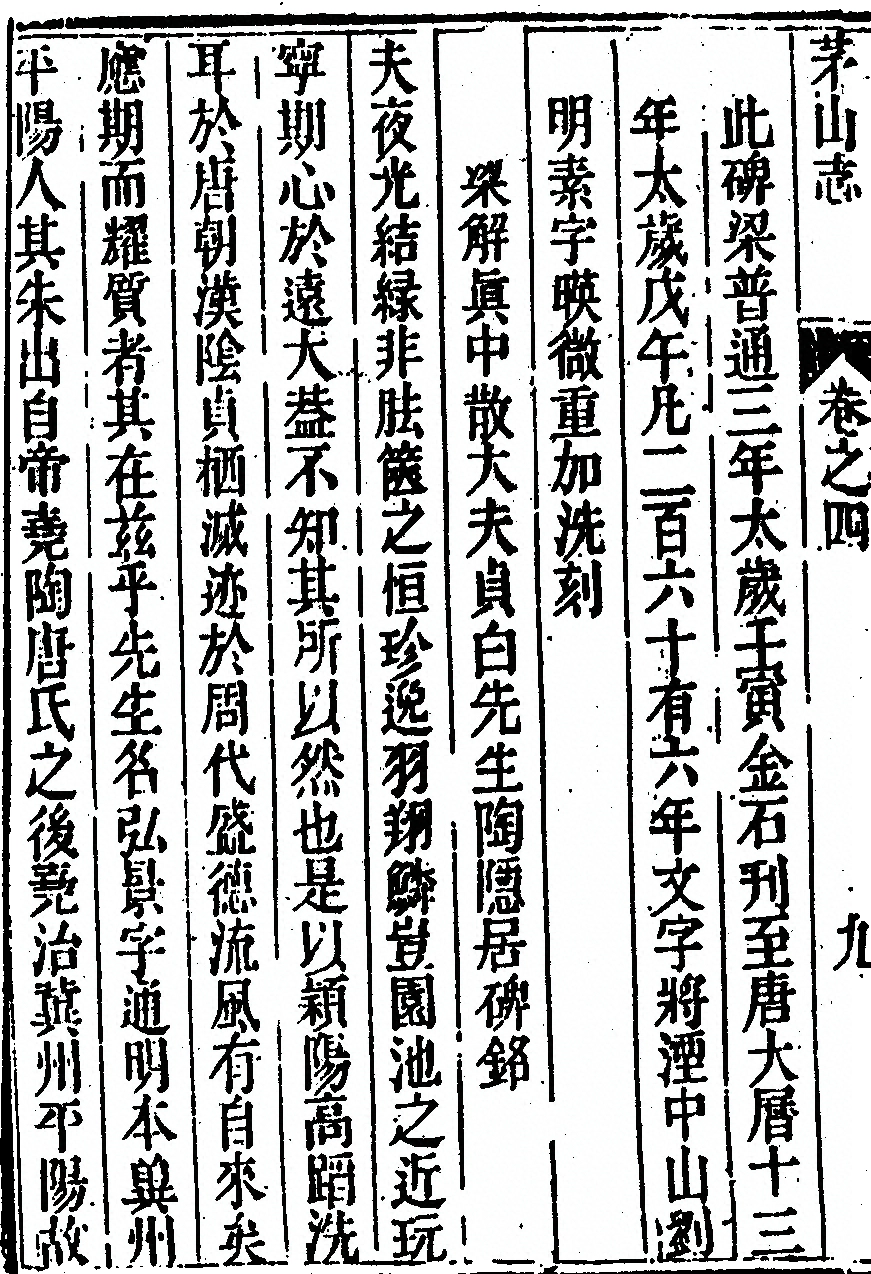 茅山志 卷之四 九
此碑梁普通三年太歲壬寅金石刋至唐大曆十三
年太歲戊午凡二百六十有六年文字將湮中山劉
明素字暎微重加洗刻
梁解眞中散大夫貞白先生陶隱居碑銘
夫夜光結緑非胠篋之恒珍逸羽翔鱗豈園池之近玩
寧期心於遠大葢不知其所以然也是以潁陽高蹈洗
耳於唐朝漢陰貞栖滅迹於周代盛德流風有自來矣
應期而耀質者其在兹乎先生名弘景字通明本冀州
平陽人其先出自帝堯陶唐氏之後堯治冀州平陽故